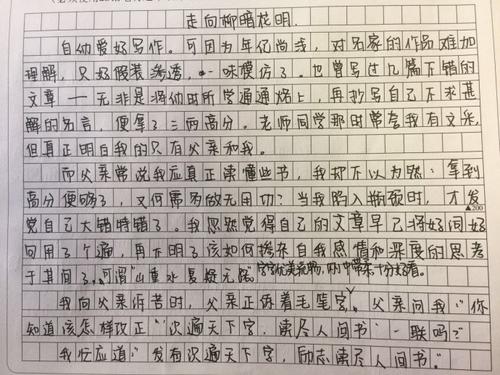 走向柳暗花明.
自幼爱好写作。可因为年纪尚浅，对名家的作品难加
理解，只好假装参透，一味模仿了。也曾写过几篇不错的
文章——无非是将幼时所学通通烙上，再抄写自己不求甚
解的名言，便拿了三两高分。老师同学那时常夸我有文采，
但真正明白我的只有父亲和我。
而父亲常说我应真正读懂些书，我却不以为然：拿到
高分便够了，又何需多做无用功？当我陷入瓶颈时，才发
▲200
觉自己大错特错了。我忽然觉得自己的文章早已将好词好
句用了个遍，再不明了该如何掺杂自我感情和深度的思考
于其间了。可谓"山重水复疑无路"
字字优美流畅，中带来十分好看。
我向父亲诉苦时，父亲正练着毛笔字，父亲问我"你
知道该怎样改正"识遍天下字，读尽人间书"一联吗？"
我忙应道"发奋识遍天下字，励志读尽人间书。"